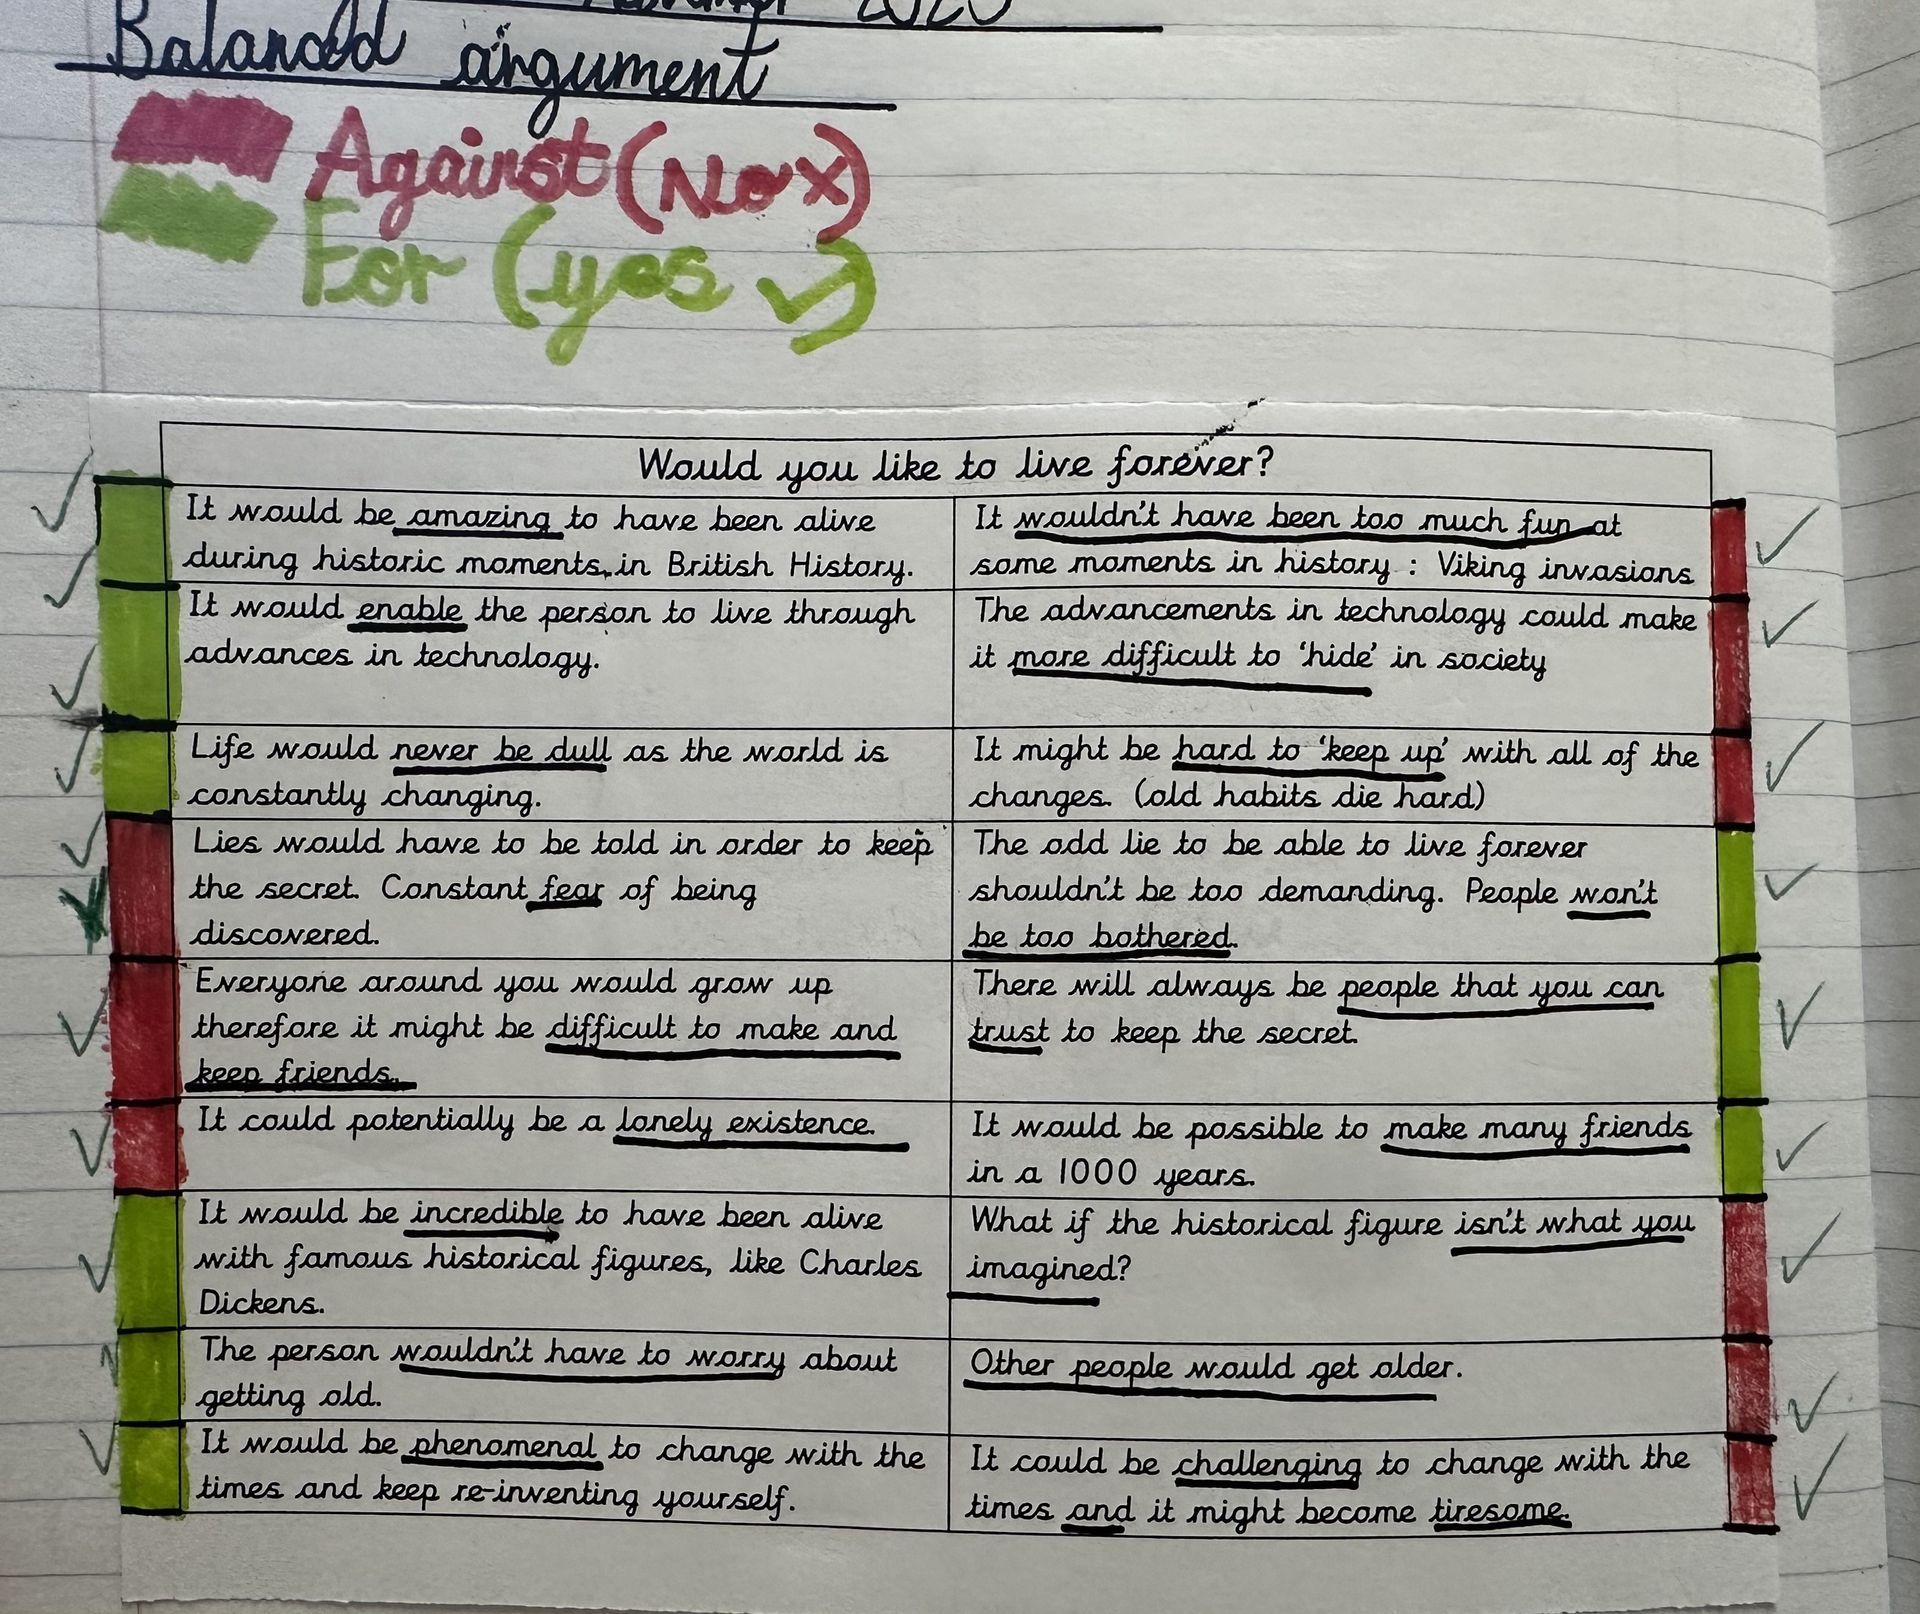 2025
Balanced argument
Against (No x)
For (yes ✓)
Would you like to live forever?
It would be amazing to have been alive
during historic moments, in British History.
It wouldn't have been too much fun at
some moments in history : Viking invasions
It would enable the person to live through
advances in technology.
The advancements in technology could make
it more difficult to 'hide' in society
Life would never be dull as the world is
constantly changing.
It might be hard to 'keep up' with all of the
changes. (old habits die hard)
Lies would have to be told in order to keep
the secret. Constant fear of being
discovered.
The odd lie to be able to live forever
shouldn't be too demanding. People won't
be too bothered.
Everyone around you would grow up
therefore it might be difficult to make and
keep friends.
There will always be people that you can
trust to keep the secret.
It could potentially be a lonely existence.
It would be possible to make many friends
in a 1000 years.
It would be incredible to have been alive
with famous historical figures, like Charles
Dickens.
What if the historical figure isn't what you
imagined?
The person wouldn't have to worry about
getting old.
Other people would get older.
It would be phenomenal to change with the
times and keep re-inventing yourself.
It could be challenging to change with the
times and it might become tiresome.